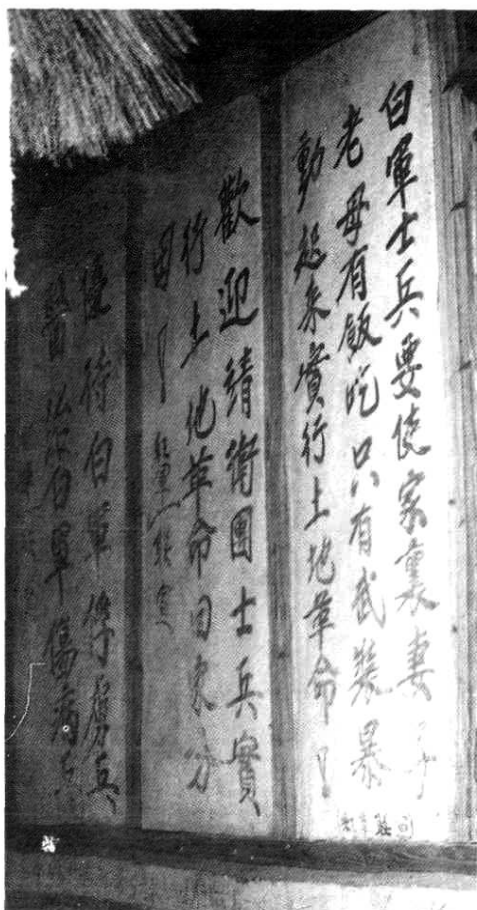 白軍士兵要使家裏妻子
老母有飯吃只有武裝暴
動起来實行土地革命！
歡迎靖衛團士兵實
行土地革命回家分
田！
優待白軍俘虜兵
醫治白軍傷病兵